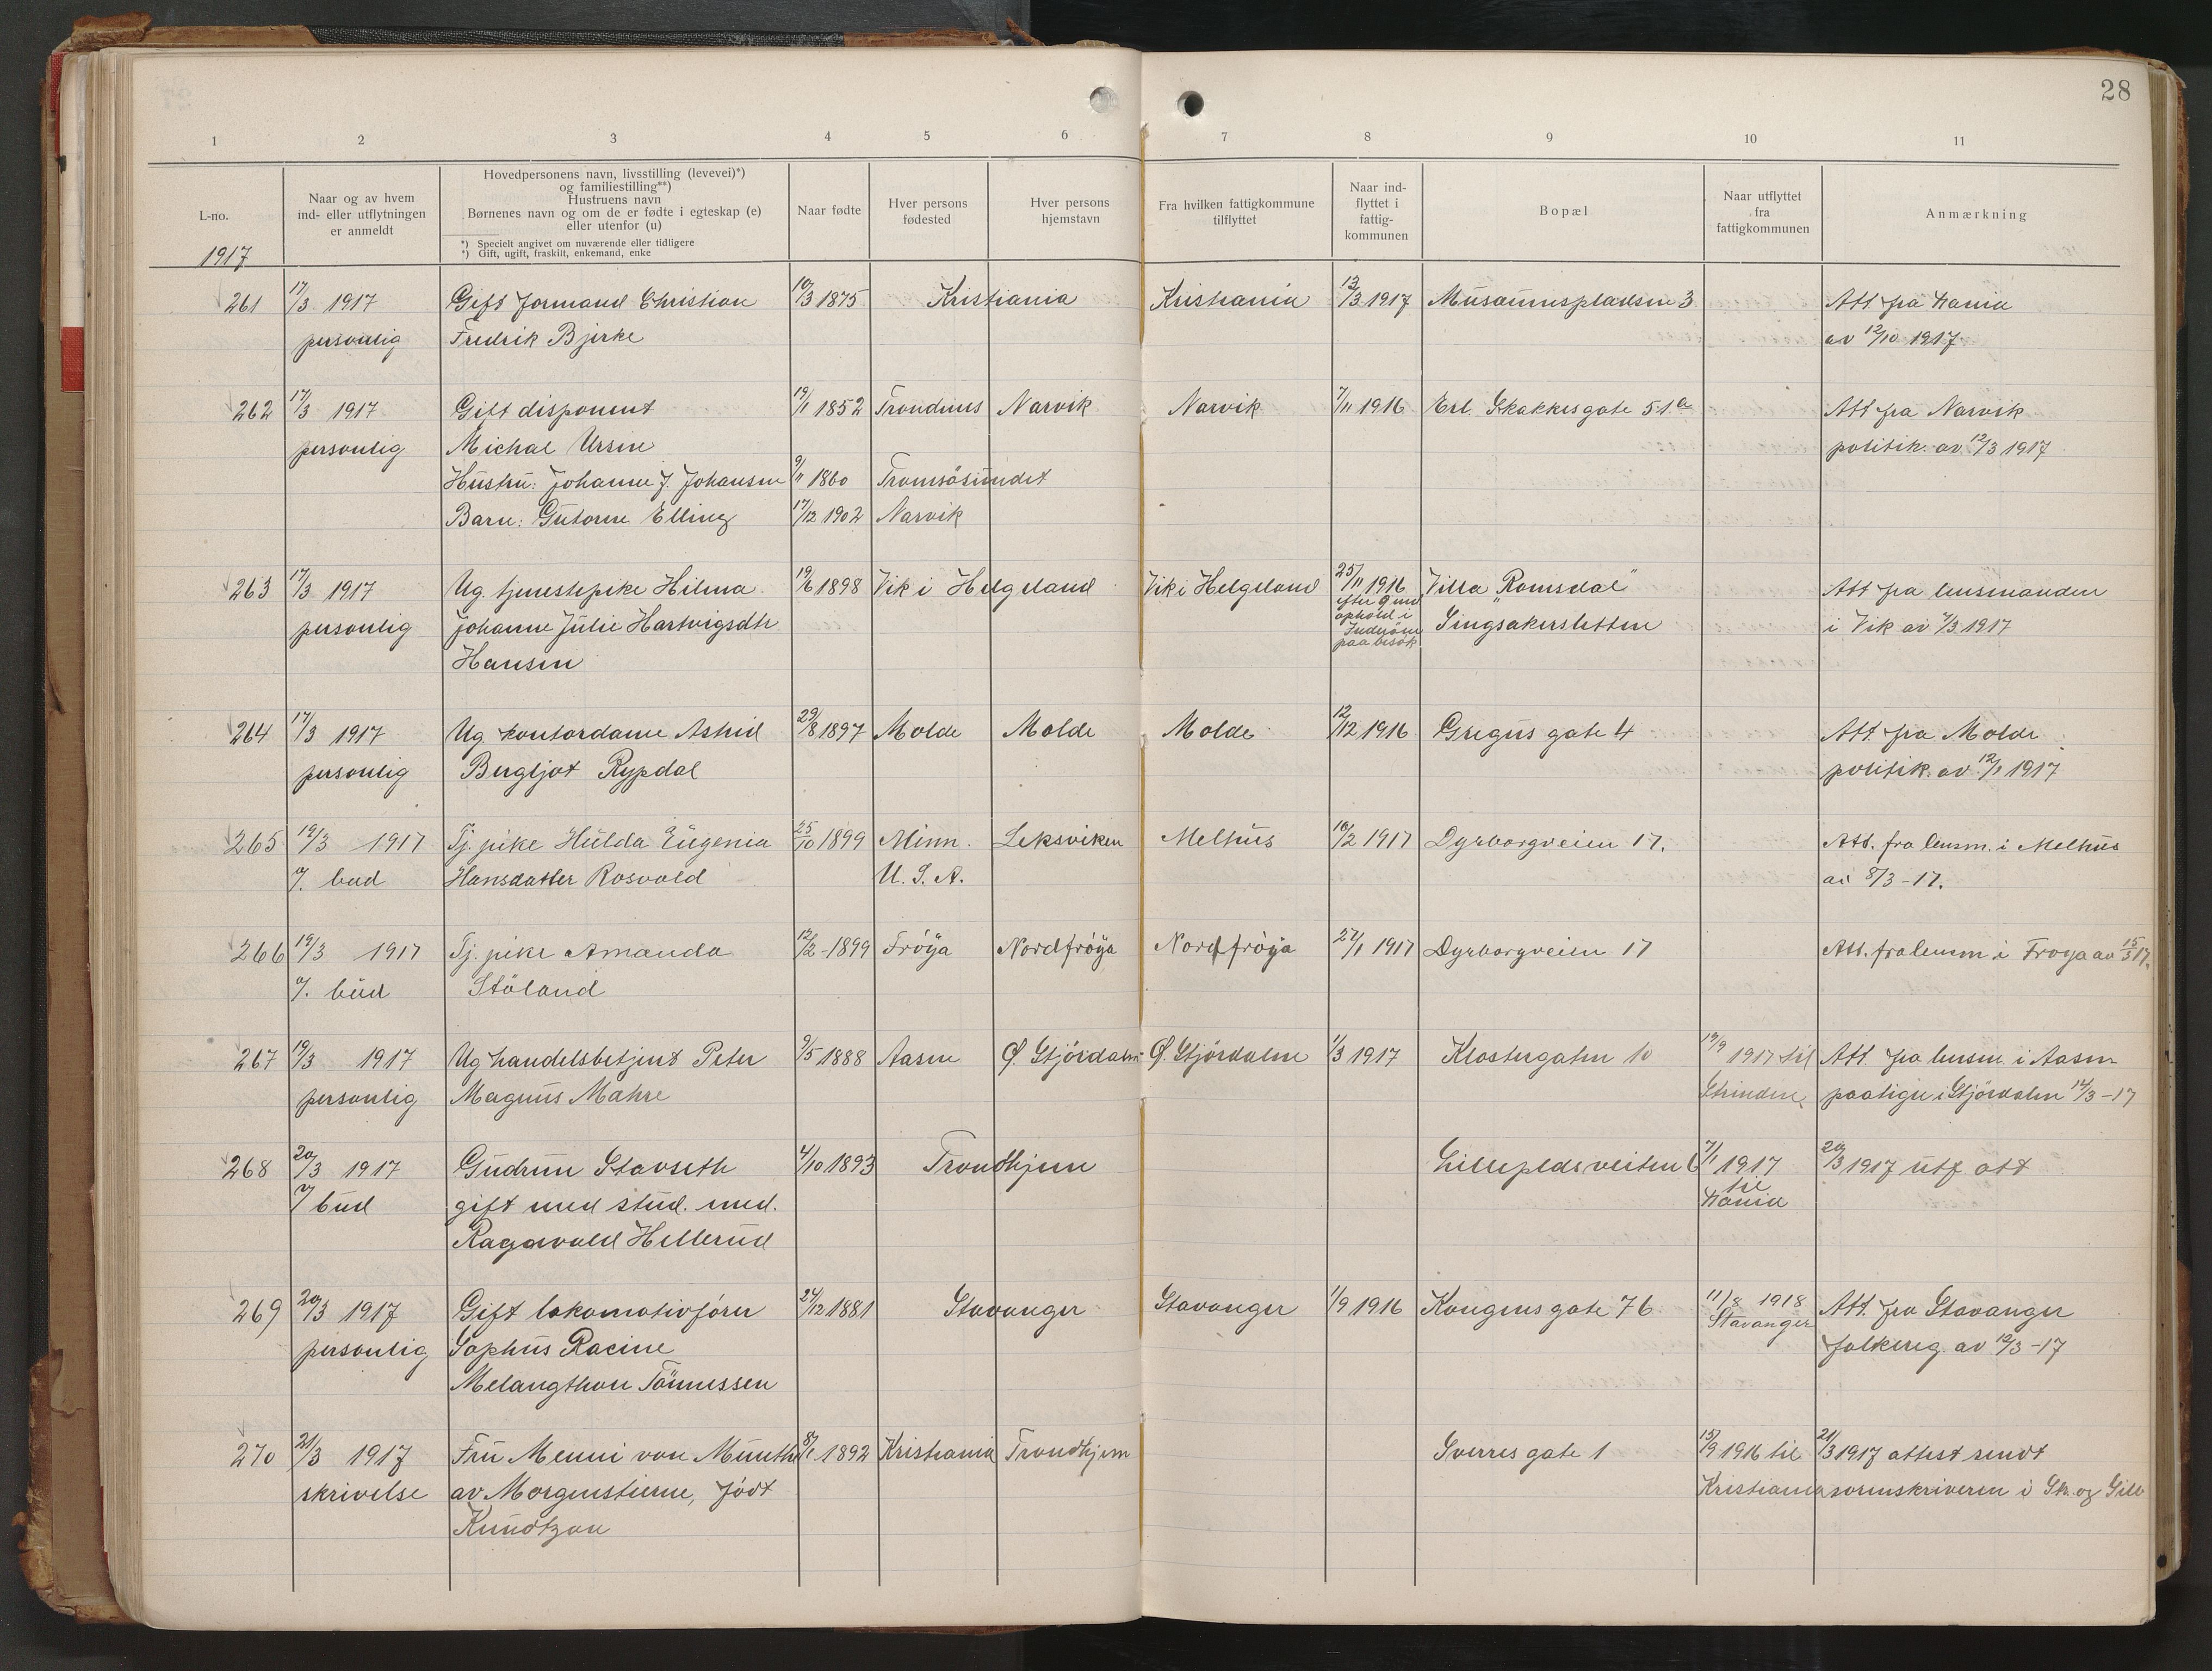 28
1 2 3 4 5 6 7 8 9 10 11
L-no.
1917
Naar og av hvem
ind- eller utflytningen
er anmeldt
Hovedpersonens navn, livsstilling (levevei)*)
og familiestilling**)
Hustruens navn
Børnenes navn og om de er fødte i egteskap (e)
eller utenfor (u)
*) Specielt angivet om nuværende eller tidligere
*) Gift, ugift, fraskilt, enkemand, enke
Naar fødte
Hver persons
fødested
Hver persons
hjemstavn
Fra hvilken fattigkommune
tilflyttet
Naar ind-
flyttet i
fattig-
kommunen
Bopæl
Naar utflyttet
fra
fattigkommunen
Anmærkning
261 17/3 1917 Gift formand Christian 10/3 1875 Kristiania Kristiania 13/3 1917 Museumspladsen 3 Att. fra Kania
personlig Fredrik Bjerke av 12/10 1917
262 17/3 1917 Gift disponent 19/1 1852 Trondenes Narvik Narvik 7/11 1916 Erl. Skakkesgate 51a Att fra Narvik
personlig Michal Ursin politik. av 12/3 1917
Hustru: Johanne J. Johansen 9/11 1860 Tromsösundet
Barn: Gutorm Elling 17/12 1902 Narvik
263 17/3 1917 Ug. tjenestepike Hilma 19/6 1898 Vik i Helgeland Vik i Helgeland 25/11 1916 Villa "Romsdal" Att fra lensmanden
efter 9 md
ophold i
Inderöen
paa besök
personlig Johanne Julie Hartvigsdtr Singsakersletten i Vik av 7/3 1917
Hansen
264 17/3 1917 Ug kontordame Astrid 29/8 1897 Molde Molde Molde 12/12 1916 Gregus gate 4 Att. fra Molde
personlig Bergljot Rypdal politik. av 12/1 1917
265 19/3 1917 Tj. pike Hulda Eugenia 25/10 1899 Minn. Leksviken Melhus 16/2 1917 Dyrborgveien 17. Att. fra lensm. i Melhus
7. bud Hansdatter Rosvold U. S. A. av 8/3-17.
266 19/3 1917 Tj. pike Amanda 12/2-1899 Fröya Nordfröya Nordfröya 27/1 1917 Dyrborgveien 17 Att. fra lensm i Froya av 15/3 17.
7. bud Stöland
267 19/3 1917 Ug handelsbetjent Peter 9/5 1888 Aasen Ø. Stjördalen Ø. Stjördalen 1/3 1917 Klostergaten 10 19/9 1917 til Att. fra lensm. i Aasen
personlig Magnus Mahre Strinden paategn i Stjördalen 14/3-17
268 20/3 1917 Gudrun Stavseth 4/10 1893 Trondhjem Lilleplds veiten 6 7/1 1917 20/3 1917 utf att
7 bud gift med stud. med. til
Kania
Ragnvald Hellerud
269 20/3 1917 Gift lokomotivförer 24/12 1881 Stavanger Stavanger 1/9 1916 Kongensgate 76 11/8 1918 Att. fra Stavanger
Stavanger
personlig Sophus Racine folkereg. av 10/3-17
Melangthon Tönnessen
270 21/3 1917 Fru Menni von Munthe 8/1 1892 Kristiania Trondhjem Sverres gate 1 15/9 1916 til 21/3 1917 attest sendt
skrivelse av Morgenstierne, födt Kristiania sorenskriveren i Str. og Selb
Knudtzon